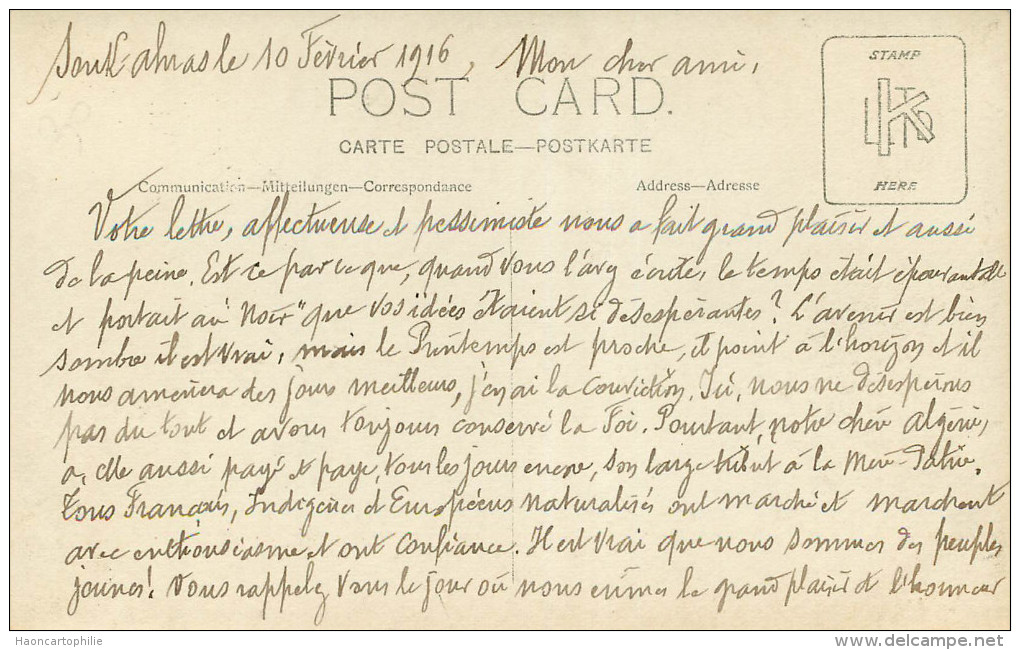 Souk-ahras le 10 Février 1916, Mon cher ami,
STAMP
POST CARD.
CARTE POSTALE—POSTKARTE
Communication—Mitteilungen—Correspondance
Address—Adresse
HERE
Votre lettre, affectueuse et pessimiste nous a fait grand plaisir et aussi
de la peine. Est ce parceque, quand vous l'avez écrite, le temps était épouvantable
et portait au "Noir" que vos idées étaient si désespérantes? L'avenir est bien
sombre il est vrai, mais le Printemps est proche, il point à l'horizon et il
nous amènera des jours meilleurs, j'en ai la conviction. Ici, nous ne désespérons
pas du tout et avons toujours conservé la Foi. Pourtant, notre chère Algérie,
a, elle aussi payé et paye, tous les jours encore, son large tribut à la Mère-Patrie.
Tous Français, Indigènes et Européens naturalisés ont marché et marchent
avec enthousiasme et ont confiance. Il est vrai que nous sommes des peuples
jeunes! Vous rappelez vous le jour où nous eûmes le grand plaisir et l'honneur
Haoncartophilie
delcampe.net